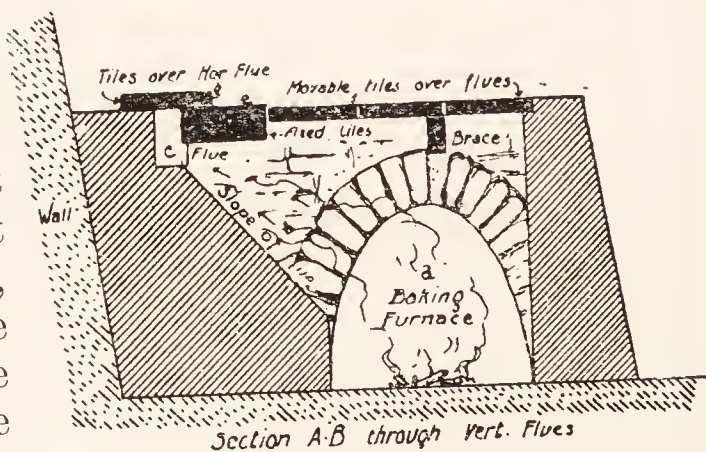 Tiles over Hor Flue
Movable tiles over flues
e
Fixed tiles
c
Flue
Brace
Slope of
Wall
a
Baking
Furnace
t
t
,
e
e
e
Section A-B through Vert. Flues